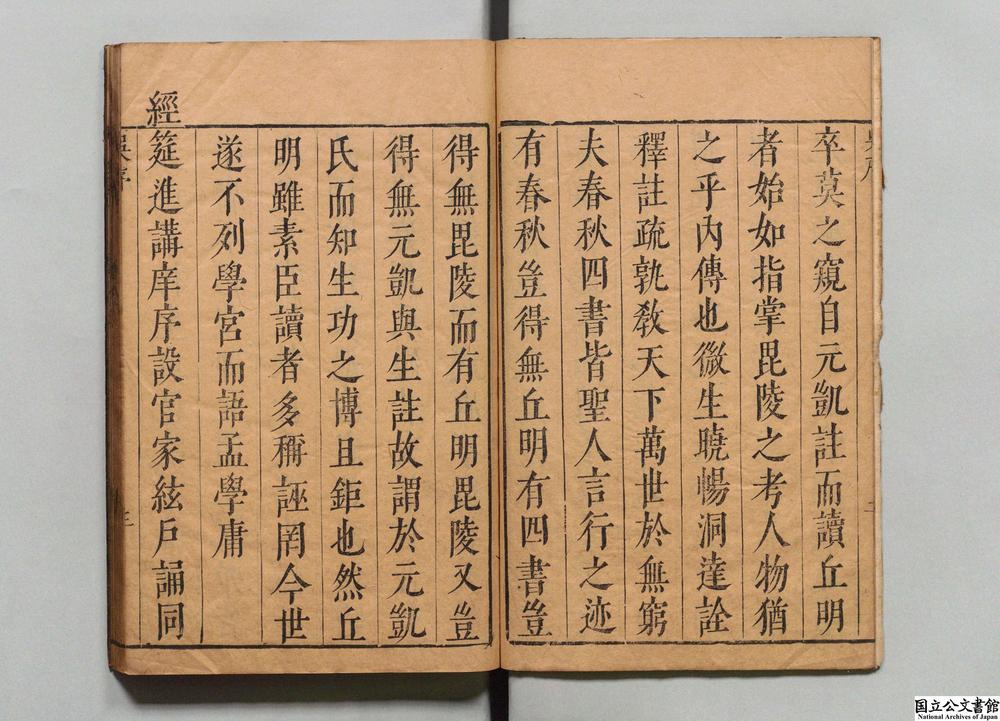 卒莫之窺自元凱註而讀丘明
者始如指掌毘陵之考人物猶
之乎內傳也微生曉暢洞達詮
釋註疏孰敎天下萬世於無窮
夫春秋四書皆聖人言行之迹
有春秋豈得無丘明有四書豈
得無毘陵而有丘明毘陵又豈
得無元凱與生註故謂於元凱
氏而知生功之博且鉅也然丘
明雖素臣讀者多稱誣罔今世
遂不列學宮而語孟學庸
經筵進講庠序設官家絃戶誦同
三
国立公文書館
National Archives of Japan